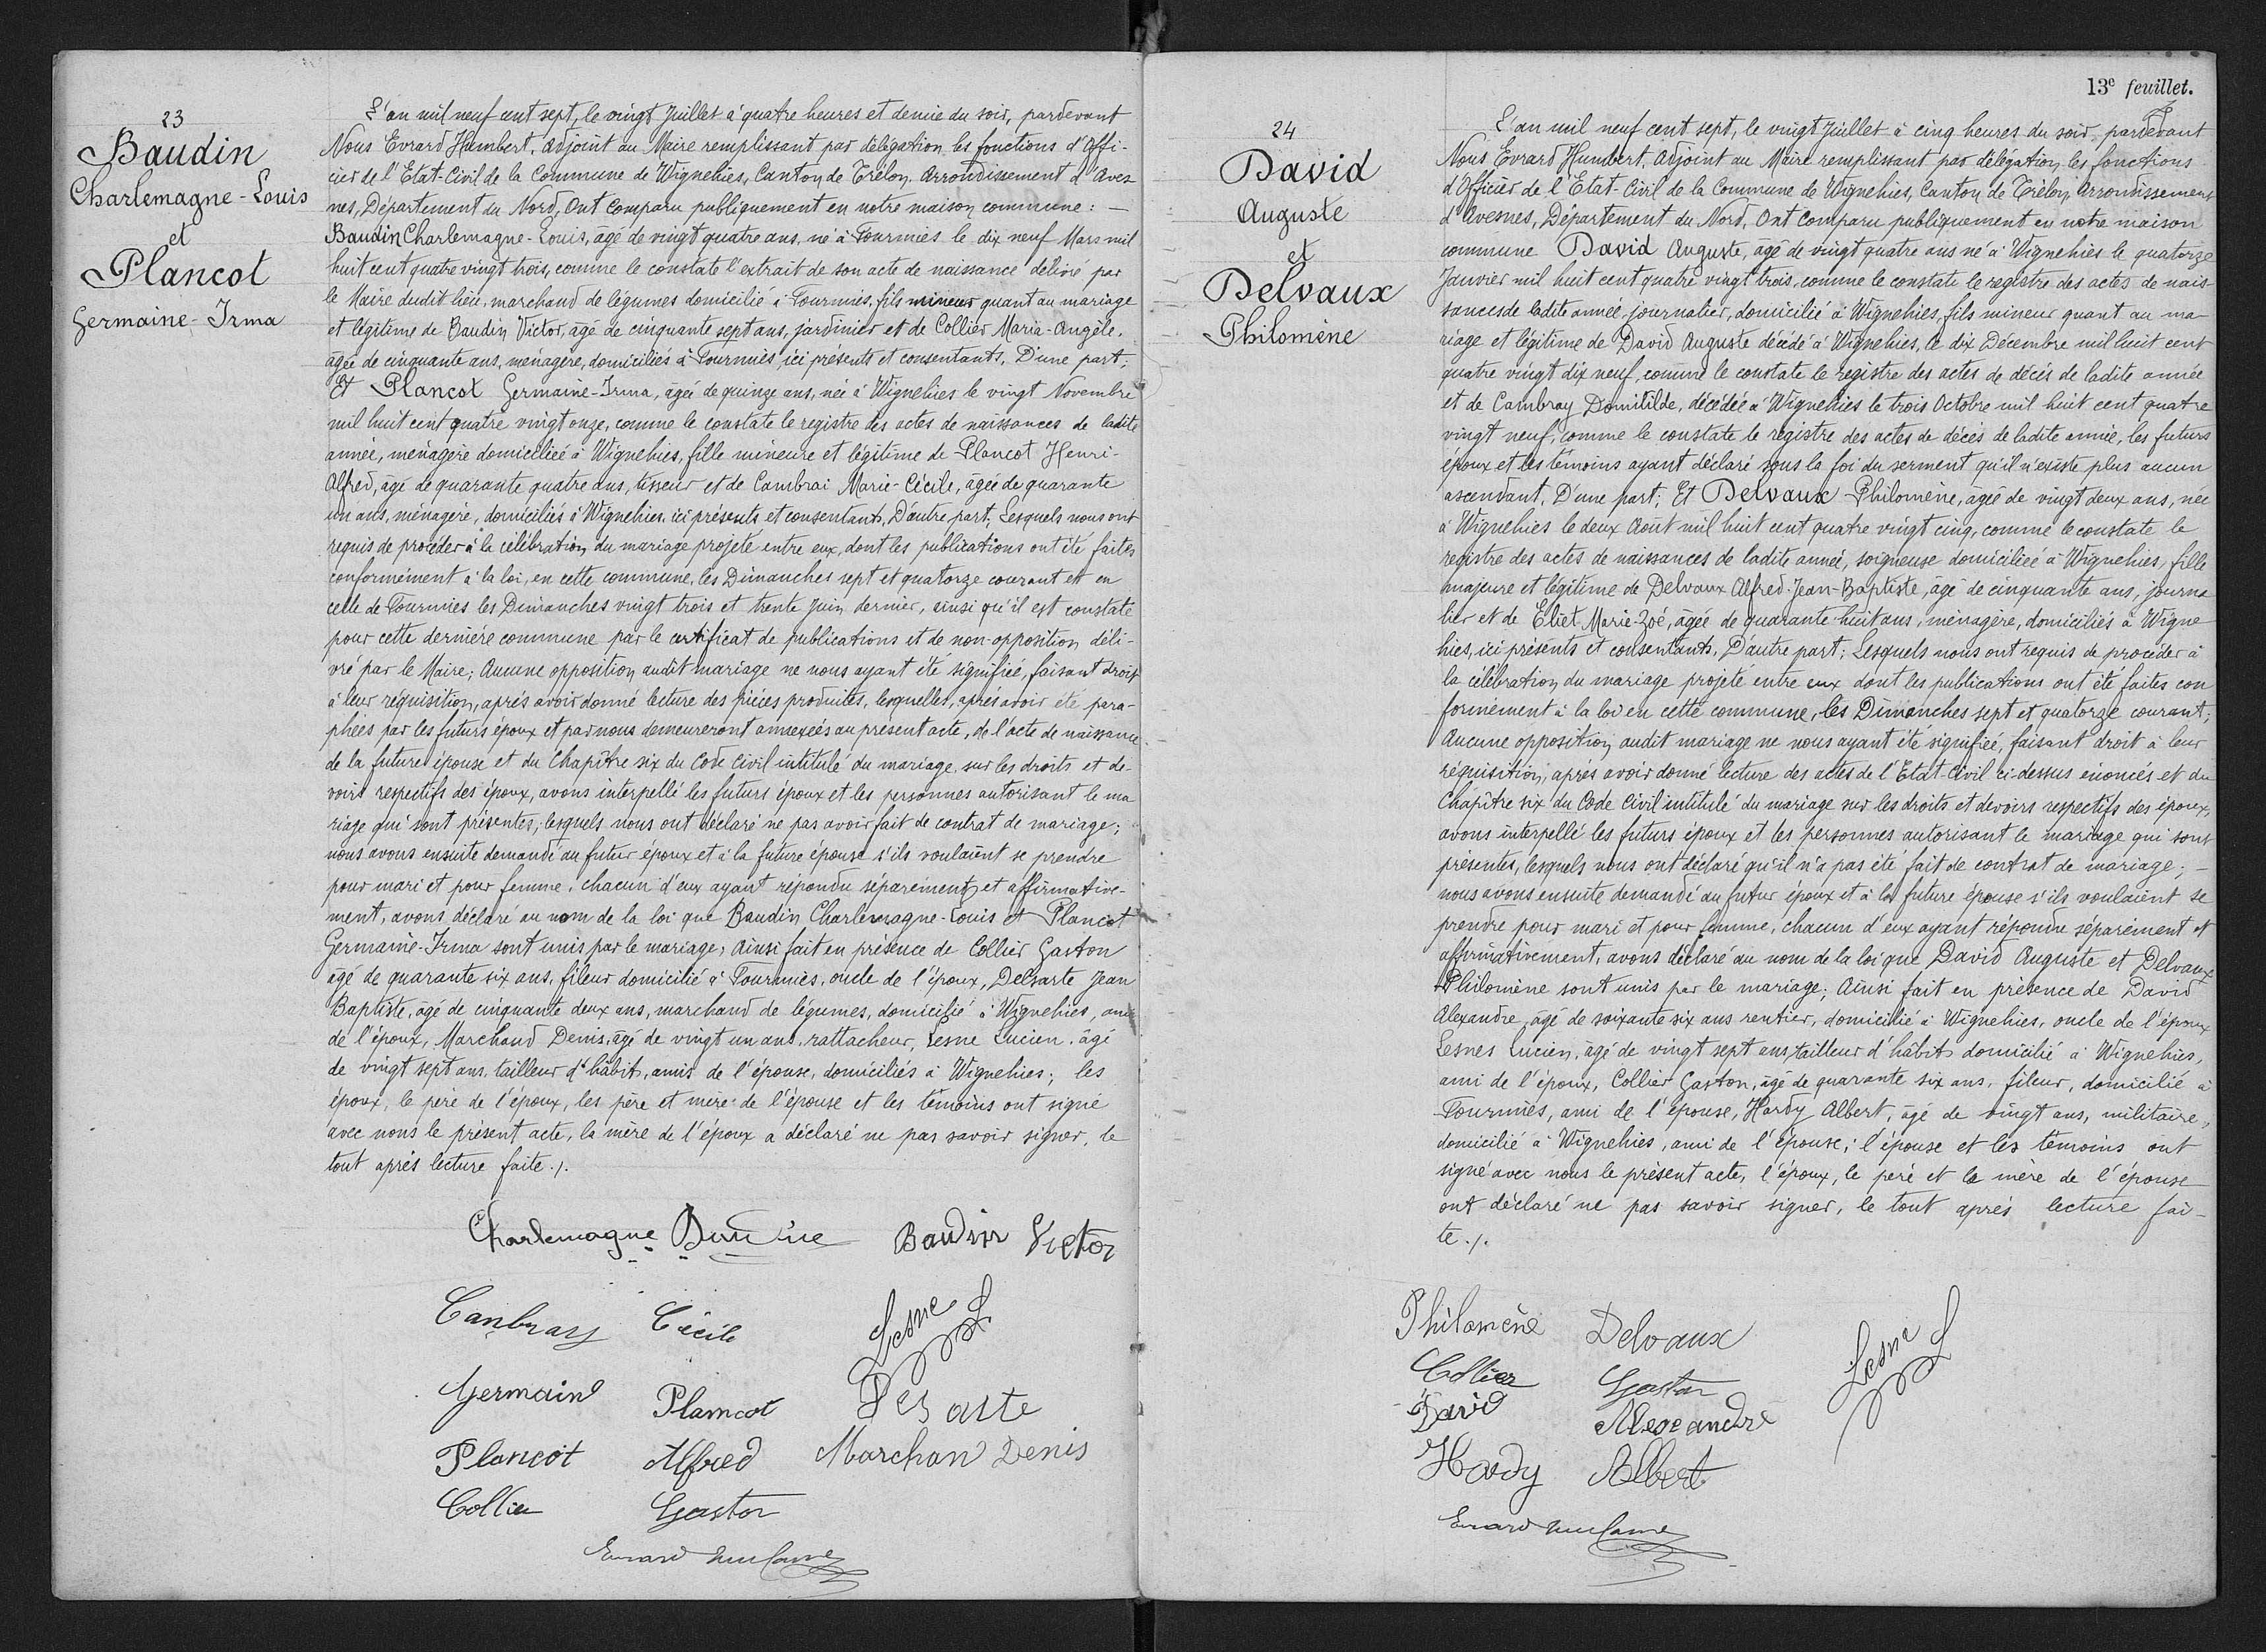 23
Baudin
Charlemagne-Louis
et
Plancot
Germaine-Irma
L'an mil neuf cent sept, le vingt Juillet à quatre heures et demie du soir, pardevant
Nous Evrard Humbert, adjoint au Maire remplissant par délégation les fonctions d'Offi-
cier de l'Etat-Civil de la Commune de Wignehies, Canton de Trélon, Arrondissement d'Aves
nes, Département du Nord, Ont Comparu publiquement en notre maison commune : —
Baudin Charlemagne-Louis, âgé de vingt quatre ans, né à Fourmies le dix neuf Mars mil
huit cent quatre vingt trois, comme le constate l'extrait de son acte de naissance délivré par
le Maire dudit lieu, marchand de légumes domicilié à Fourmies, fils mineur quant au mariage
et légitime de Baudin Victor, âgé de cinquante sept ans, jardinier et de Collier Maria-Angèle,
âgée de cinquante ans, ménagère, domiciliés à Fourmies, ici présents et consentants, D'une part;
Et Plancot Germaine-Irma, âgée de quinze ans, née à Wignehies le vingt Novembre
mil huit cent quatre vingt onze, comme le constate le registre des actes de naissances de ladite
année, ménagère domiciliée à Wignehies, fille mineure et légitime de Plancot Henri-
Alfred, âgé de quarante quatre ans, tisseur et de Cambrai Marie-Cécile, âgée de quarante
un ans, ménagère, domiciliés à Wignehies, ici présents et consentants, D'autre part; Lesquels nous ont
requis de procéder à la célébration du mariage projeté entre eux, dont les publications ont été faites
conformément à la loi, en cette commune, les Dimanches sept et quatorze courant et en
celle de Fourmies les Dimanches vingt trois et trente Juin dernier, ainsi qu'il est constaté
pour cette dernière commune par le certificat de publications et de non-opposition déli-
vré par le Maire; Aucune opposition audit mariage ne nous ayant été signifiée, faisant droit
à leur réquisition, après avoir donné lecture des pièces produites, lesquelles, après avoir été para-
phées par les futurs époux et par nous demeureront annexées au présent acte, de l'acte de naissance
de la future épouse et du Chapitre six du Code Civil intitulé du mariage, sur les droits et de-
voirs respectifs des époux, avons interpellé les futurs époux et les personnes autorisant le ma
riage qui sont présentes, lesquels nous ont déclaré ne pas avoir fait de contrat de mariage;
nous avons ensuite demandé au futur époux et à la future épouse s'ils voulaient se prendre
pour mari et pour femme, chacun d'eux ayant répondu séparément et affirmative-
ment, avons déclaré au nom de la loi que Baudin Charlemagne-Louis et Plancot
Germaine-Irma sont unis par le mariage; Ainsi fait en présence de Collier Gaston
âgé de quarante six ans, fileur domicilié à Fourmies, oncle de l'époux, Delsarte Jean
Baptiste, âgé de cinquante deux ans, marchand de légumes, domicilié à Wignehies, ami
de l'époux, Marchand Denis, âgé de vingt un ans, rattacheur, Lesne Lucien, âgé
de vingt sept ans, tailleur d'habits, amis de l'épouse, domiciliés à Wignehies; les
époux, le père de l'époux, les père et mère de l'épouse et les témoins ont signé
avec nous le présent acte, la mère de l'époux a déclaré ne pas savoir signer, le
tout après lecture faite ./.
Charlemagne Baudin Victor
Canbray Cécile Lesne
Germaine Plancot
Plancot Alfred Marchan Denis
Collier Gaston
13e feuillet.
24
David
Auguste
et
Delvaux
Philomène
L'an mil neuf cent sept, le vingt Juillet à cinq heures du soir, pardevant
Nous Evrard Humbert, adjoint au Maire remplissant par délégation, les fonctions
d'Officier de l'Etat-Civil de la Commune de Wignehies, Canton de Trélon, Arrondissement
d'Avesnes, Département du Nord, Ont Comparu publiquement en notre maison
commune David Auguste, âgé de vingt quatre ans né à Wignehies le quatorze
Janvier mil huit cent quatre vingt trois, comme le constate le registre des actes de nais-
sances de ladite année, journalier, domicilié à Wignehies, fils mineur quant au ma-
riage et légitime de David Auguste décédé à Wignehies, le dix Décembre mil huit cent
quatre vingt dix neuf, comme le constate le registre des actes de décès de ladite année
et de Cambray Domitilde, décédée à Wignehies le trois Octobre mil huit cent quatre
vingt neuf, comme le constate le registre des actes de décès de ladite année, les futurs
époux et les témoins ayant déclaré sous la foi du serment qu'il n'existe plus aucun
ascendant, D'une part; Et Delvaux Philomène, âgée de vingt deux ans, née
à Wignehies le deux Aout mil huit cent quatre vingt cinq, comme le constate le
registre des actes de naissances de ladite année, soigneuse domiciliée à Wignehies, fille
majeure et légitime de Delvaux Alfred-Jean-Baptiste, âgé de cinquante ans, journa
lier et de Eliet Marie-Zoé, âgée de quarante-huit ans, ménagère, domiciliés à Wigne
hies, ici présents et consentants, D'autre part; Lesquels nous ont requis de procéder à
la célébration du mariage projeté entre eux dont les publications ont été faites con
formément à la loi en cette commune, les Dimanches sept et quatorze courant;
Aucune opposition audit mariage ne nous ayant été signifiée, faisant droit à leur
réquisition, après avoir donné lecture des actes de l'Etat-Civil ci-dessus énoncés et du
Chapitre six du Code Civil intitulé du mariage sur les droits et devoirs respectifs des époux,
avons interpellé les futurs époux et les personnes autorisant le mariage qui sont
présentes, lesquels nous ont déclaré qu'il n'a pas été fait de contrat de mariage; —
nous avons ensuite demandé au futur époux et à la future épouse s'ils voulaient se
prendre pour mari et pour femme, chacun d'eux ayant répondu séparément et
affirmativement, avons déclaré au nom de la loi que David Auguste et Delvaux
Philomène sont unis par le mariage; Ainsi fait en présence de David
Alexandre, âgé de soixante six ans rentier, domicilié à Wignehies, oncle de l'époux
Lesnes Lucien, âgé de vingt sept ans, tailleur d'habits domicilié à Wignehies,
ami de l'époux, Collier Gaston, âgé de quarante six ans, fileur, domicilié à
Fourmies, ami de l'épouse, Hardy Albert, âgé de vingt ans, militaire,
domicilié à Wignehies, ami de l'épouse; l'épouse et les témoins ont
signé avec nous le présent acte, l'époux, le père et la mère de l'épouse
ont déclaré ne pas savoir signer, le tout après lecture fai-
te ./.
Philomène Delvaux Lesne
Collier Gaston
David Alexandre
Hardy Albert